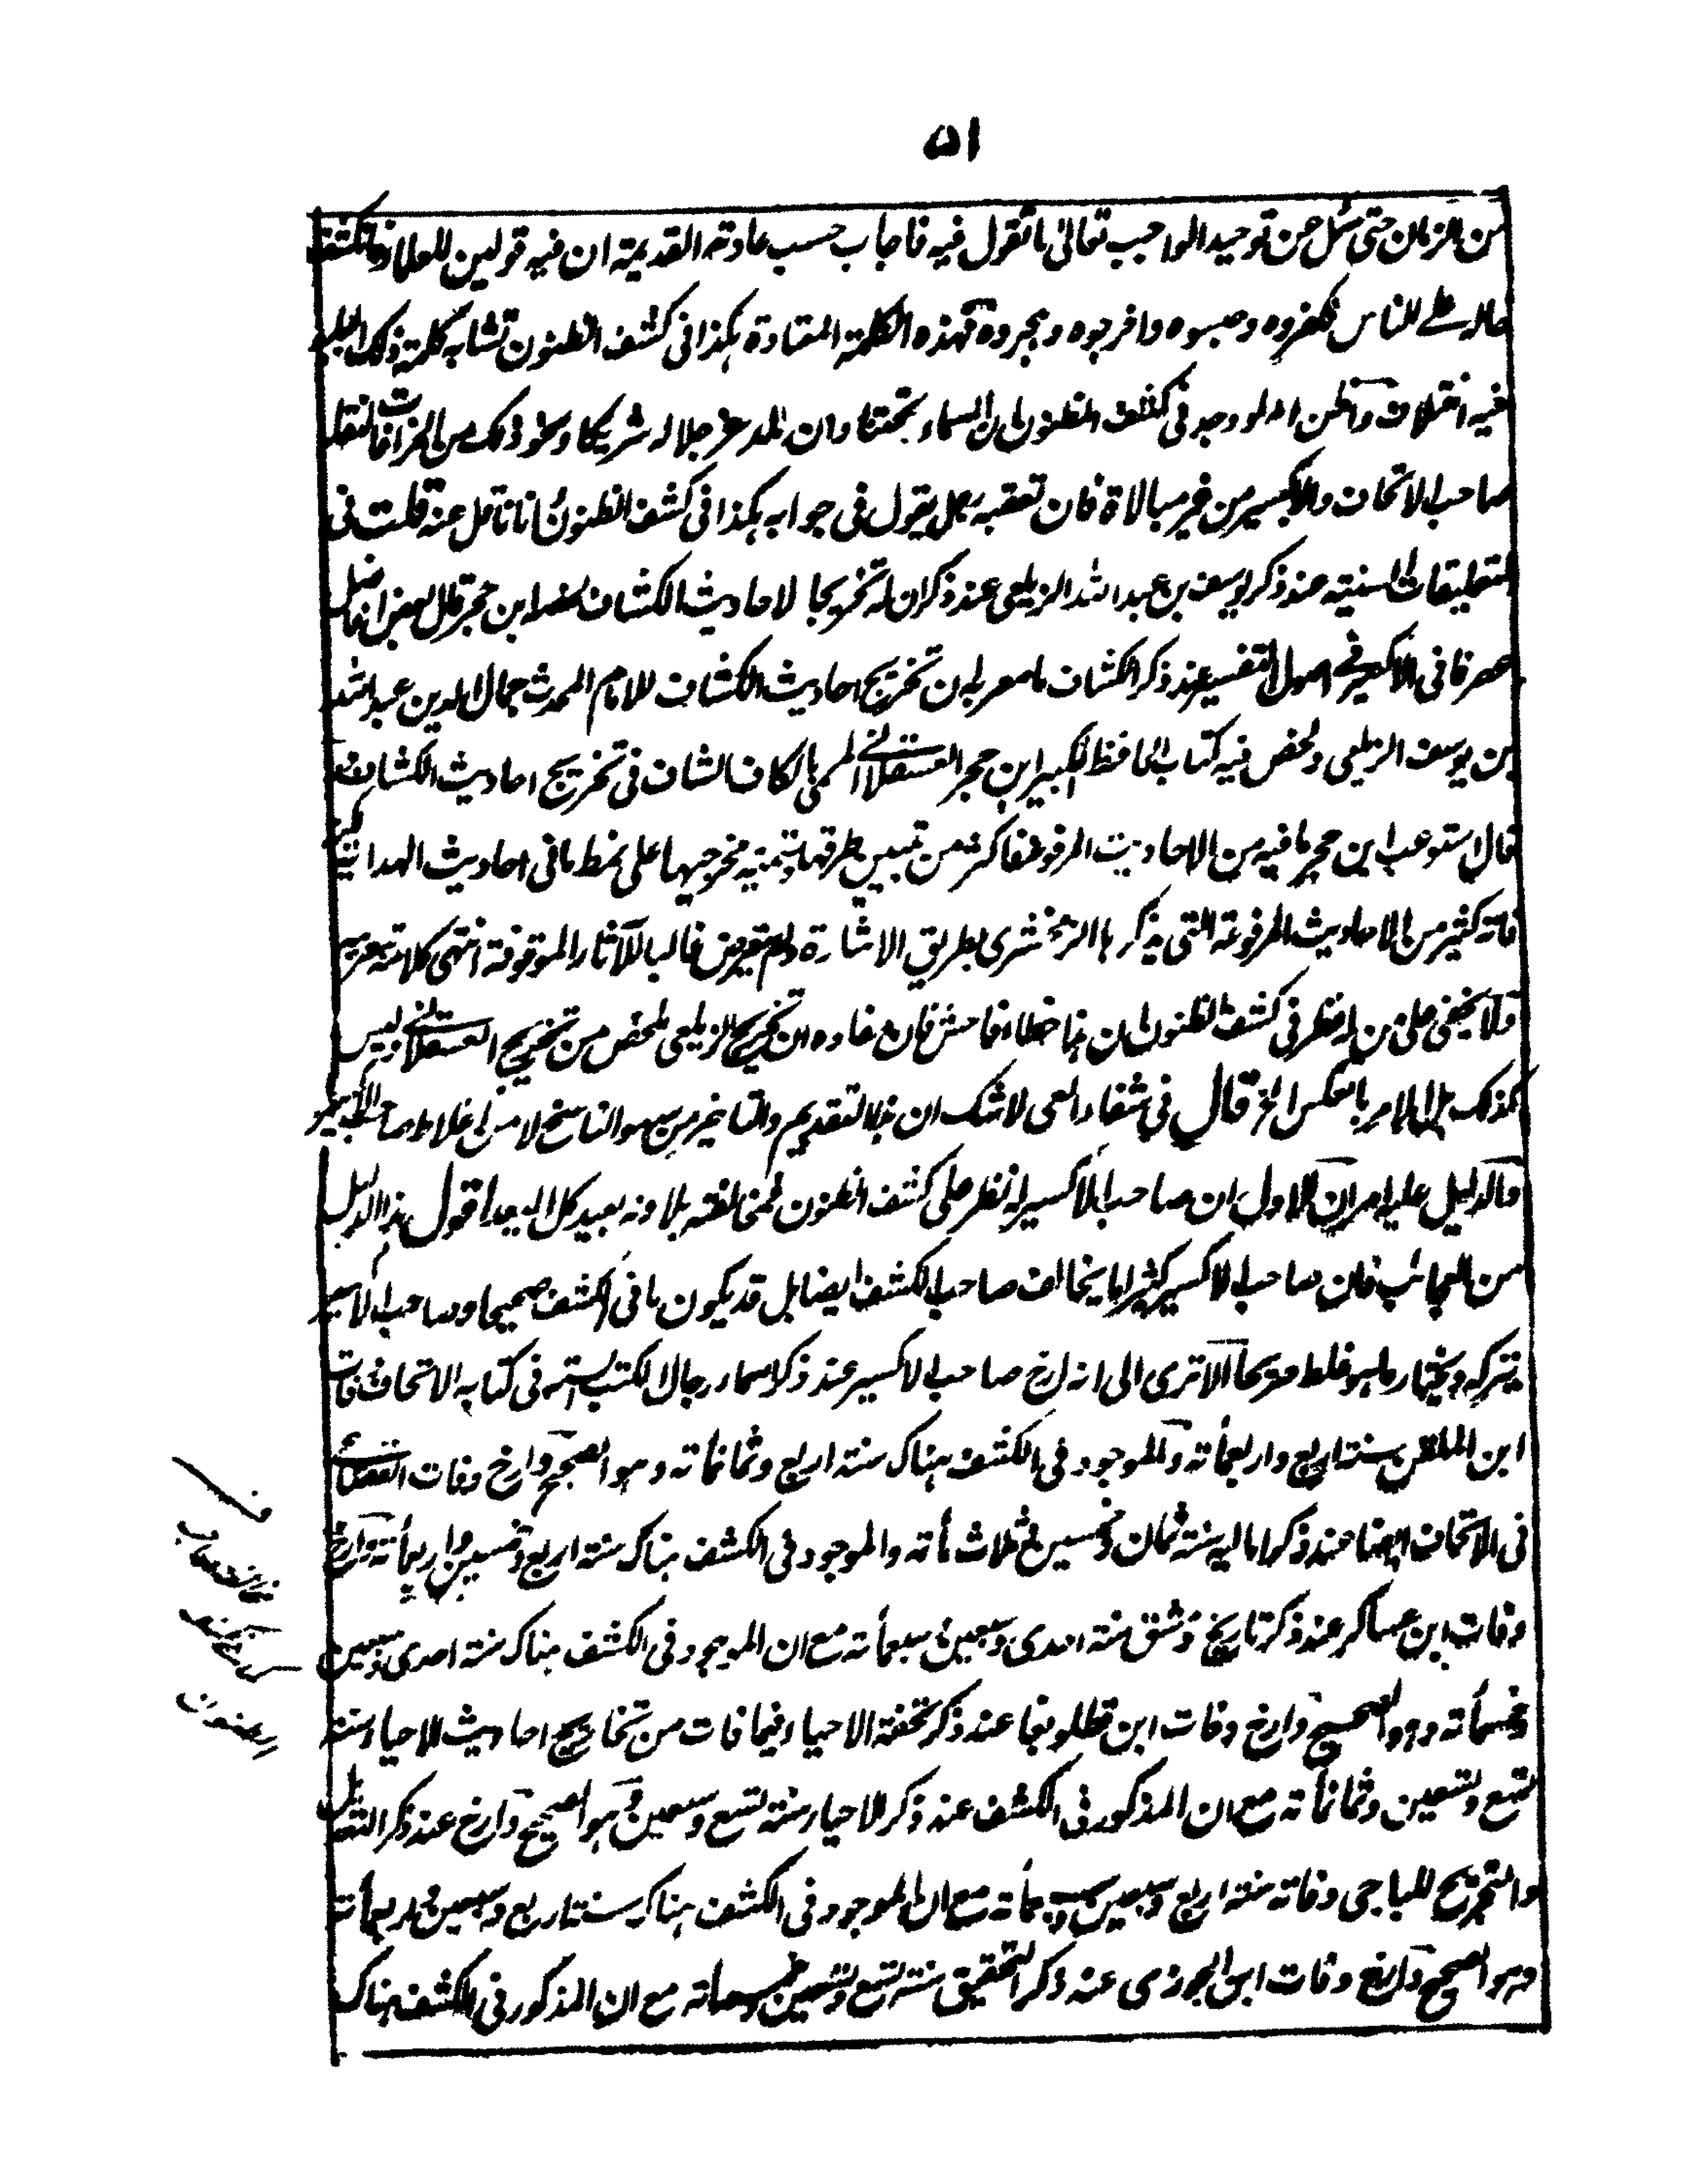 ۵۱
من الزمان حتى سئل عن توحيد الواجب تعالى ما تقول فيه فاجاب حسب عادته القديمة ان فيه قولين للعلماء فانكشف
حاله على الناس فكفروه وحبسوه واخرجوه وهجروه فهذه الكلمة المعتادة هكذا فى كشف الظنون تشابه كلمة ذلك
فيه اختلاف واظن انه لو وجد فى كشف الظنون ان السماء تحتنا وان لله عز جلاله شريكا ونحو ذلك من الخرافات لنقله
صاحب الاتحاف والاكسير من غير مبالاة فان تعقبه رجل يقول فى جوابه هكذا فى كشف الظنون انا ناقل عنه قلت فى
التعليقات السنية عند ذكر يوسف بن عبد الله الزيلعى عند ذكر ان له تخريجا لاحاديث الكشاف لخصه ابن حجر قال بعض افاضل
عصرنا فى الاكسير فى اصول التفسير عند ذكر الكشاف ما معربه ان تخريج احاديث الكشاف للامام المحدث جمال الدين عبد الله
بن يوسف الزيلعى ولخص فيه كتاب الحافظ الكبير ابن حجر العسقلانى المسمى بالكاف الشاف فى تخريج احاديث الكشاف
قال استوعب ابن حجر ما فيه من الاحاديث المرفوعة فاكثر من تبيين طرقها وتسمية مخرجيها على نمط ما فى احاديث الهداية لكنه
فاته كثير من الاحاديث المرفوعة التى يذكرها الزمخشرى بطريق الاشارة ولم يتعرض غالبا للآثار الموقوفة انتهى كلامه معربا
ولا يخفى على من له نظر فى كشف الظنون ان هذا خطاء فاحش فان مفاده ان تخريج الزيلعى ملخص من تخريج العسقلانى وليس
كذلك بل الامر بالعكس الخ قال فى شفاء العى لا شك ان هذا التقديم والتاخير من سهو الناسخ لا من اغلاط صاحب الاكسير
والدليل عليه امران الاول ان صاحب الاكسير له نظر على كشف الظنون فمخالفته بلا وجه بعيد كل البعد اقول هذا الدليل
من العجائب فان صاحب الاكسير كثيرا ما يخالف صاحب الكشف ايضا بل قد يكون ما فى الكشف صحيحا وصاحب الاكسير
يتركه ويختار ما هو غلط صريحا الا ترى الى انه ارخ صاحب الاكسير عند ذكر اسماء رجال الكتب الستة فى كتابه الاتحاف وفات
ابن الملقن سنة اربع واربعمائة والموجود فى الكشف هناك سنة اربع وثمانمائة وهو الصحيح وارخ وفات القضاعى
فى الاتحاف ايضا عند ذكر اماليه سنة ثمان وخمسين وثلاث مائة والموجود فى الكشف هناك سنة اربع وخمسين واربعمائة وارخ
وفات ابن عساكر عند ذكر تاريخ دمشق سنة احدى وسبعين وسبعمائة مع ان الموجود فى الكشف هناك سنة احدى وسبعين
وخمسمائة وهو الصحيح وارخ وفات ابن قطلوبغا عند ذكر تحفة الاحياء فيما فات من تخاريج احاديث الاحياء سنة
تسع وتسعين وثمانمائة مع ان المذكور فى الكشف عند ذكر الاحياء سنة تسع وسبعين وهو الصحيح وارخ عند ذكر التعديل
والتجريح للباجى وفاته سنة اربع وسبعين وسبعمائة مع ان الموجود فى الكشف هناك سنة اربع وسبعين واربعمائة
وهو الصحيح وارخ وفات ابن الجوزى عند ذكر التحقيق سنة تسع وتسعين وخمسمائة مع ان المذكور فى الكشف هناك